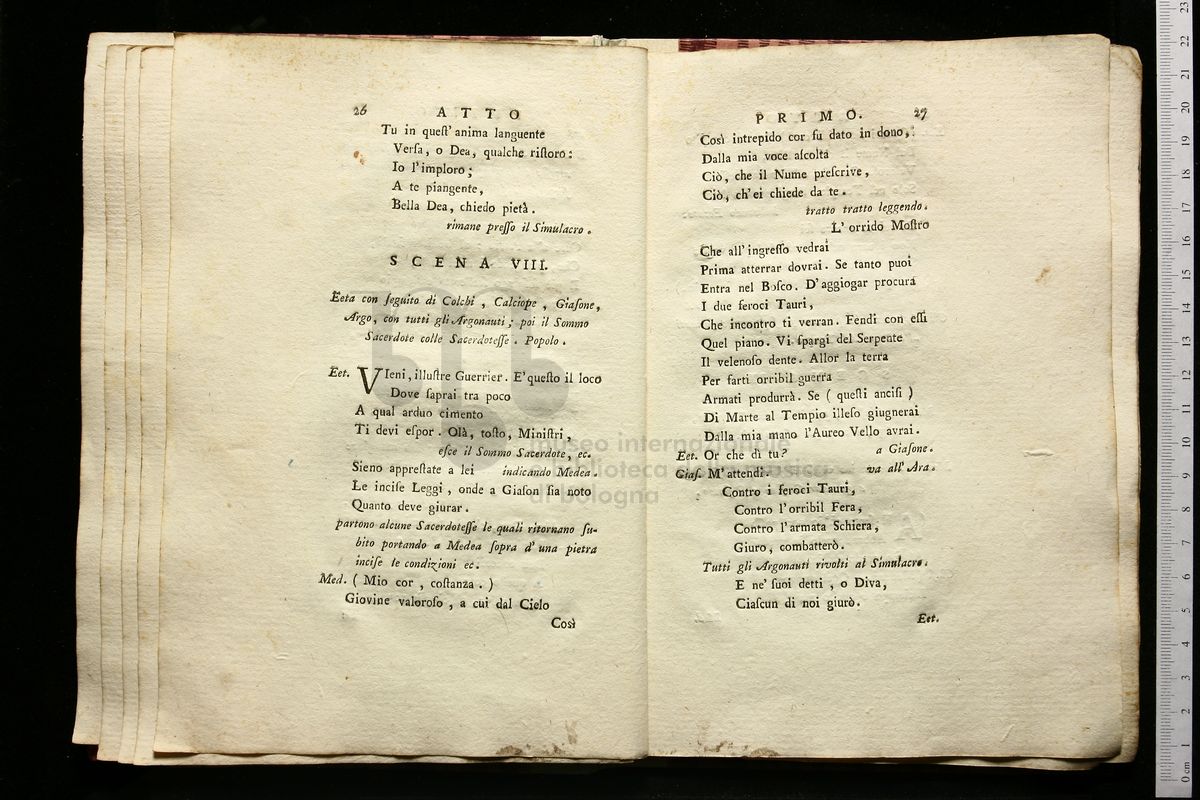 26 ATTO
Tu in queſt' anima languente
Verſa, o Dea, qualche riſtoro:
Io l'imploro;
A te piangente,
Bella Dea, chiedo pietà.
rimane preſſo il Simulacro.
SCENA VIII.
Eeta con ſeguito di Colchi, Calciope, Giaſone,
Argo, con tutti gli Argonauti; poi il Sommo
Sacerdote colle Sacerdoteſſe. Popolo.
Eet. VIeni, illuſtre Guerrier. E' queſto il loco
Dove ſaprai tra poco
A qual arduo cimento
Ti devi eſpor. Olà, toſto, Miniſtri,
eſce il Sommo Sacerdote, ec.
Sieno appreſtate a lei indicando Medea.
Le inciſe Leggi, onde a Giaſon ſia noto
Quanto deve giurar.
partono alcune Sacerdoteſſe le quali ritornano ſu-
bito portando a Medea ſopra d'una pietra
inciſe le condizioni ec.
Med. (Mio cor, coſtanza.)
Giovine valoroſo, a cui dal Cielo
Così
PRIMO. 27
Così intrepido cor fu dato in dono,
Dalla mia voce aſcolta
Ciò, che il Nume preſcrive,
Ciò, ch'ei chiede da te.
tratto tratto leggendo.
L'orrido Moſtro
Che all'ingreſſo vedrai
Prima atterrar dovrai. Se tanto puoi
Entra nel Boſco. D'aggiogar procura
I due feroci Tauri,
Che incontro ti verran. Fendi con eſſi
Quel piano. Vi ſpargi del Serpente
Il velenoſo dente. Allor la terra
Per farti orribil guerra
Armati produrrà. Se (queſti anciſi)
Di Marte al Tempio illeſo giugnerai
Dalla mia mano l'Aureo Vello avrai.
Eet. Or che dì tu? a Giaſone.
Giaſ. M'attendi. va all'Ara.
Contro i feroci Tauri,
Contro l'orribil Fera,
Contro l'armata Schiera,
Giuro, combatterò.
Tutti gli Argonauti rivolti al Simulacro.
E ne' ſuoi detti, o Diva,
Ciaſcun di noi giurò.
Eet.
museo internazionale
biblioteca della musica
di bologna
0 cm 1 2 3 4 5 6 7 8 9 10 11 12 13 14 15 16 17 18 19 20 21 22 23